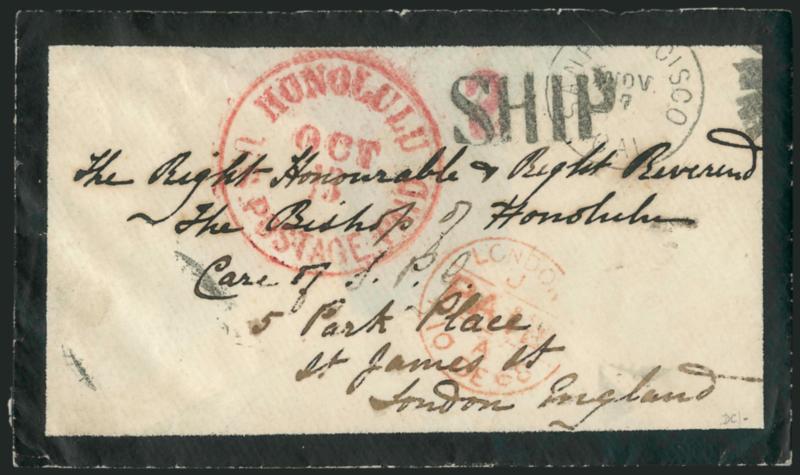 HONOLULU
U.S. POSTAGE PAID
OCT
3
SHIP
SAN FRANCISCO
NOV
7
CAL
The Right Honourable & Right Reverend
~ The Bishop of Honolulu
Care of S. P. G
5 Park Place
St James St
London England
LONDON
PAID
A
10 DE 68
DC/-